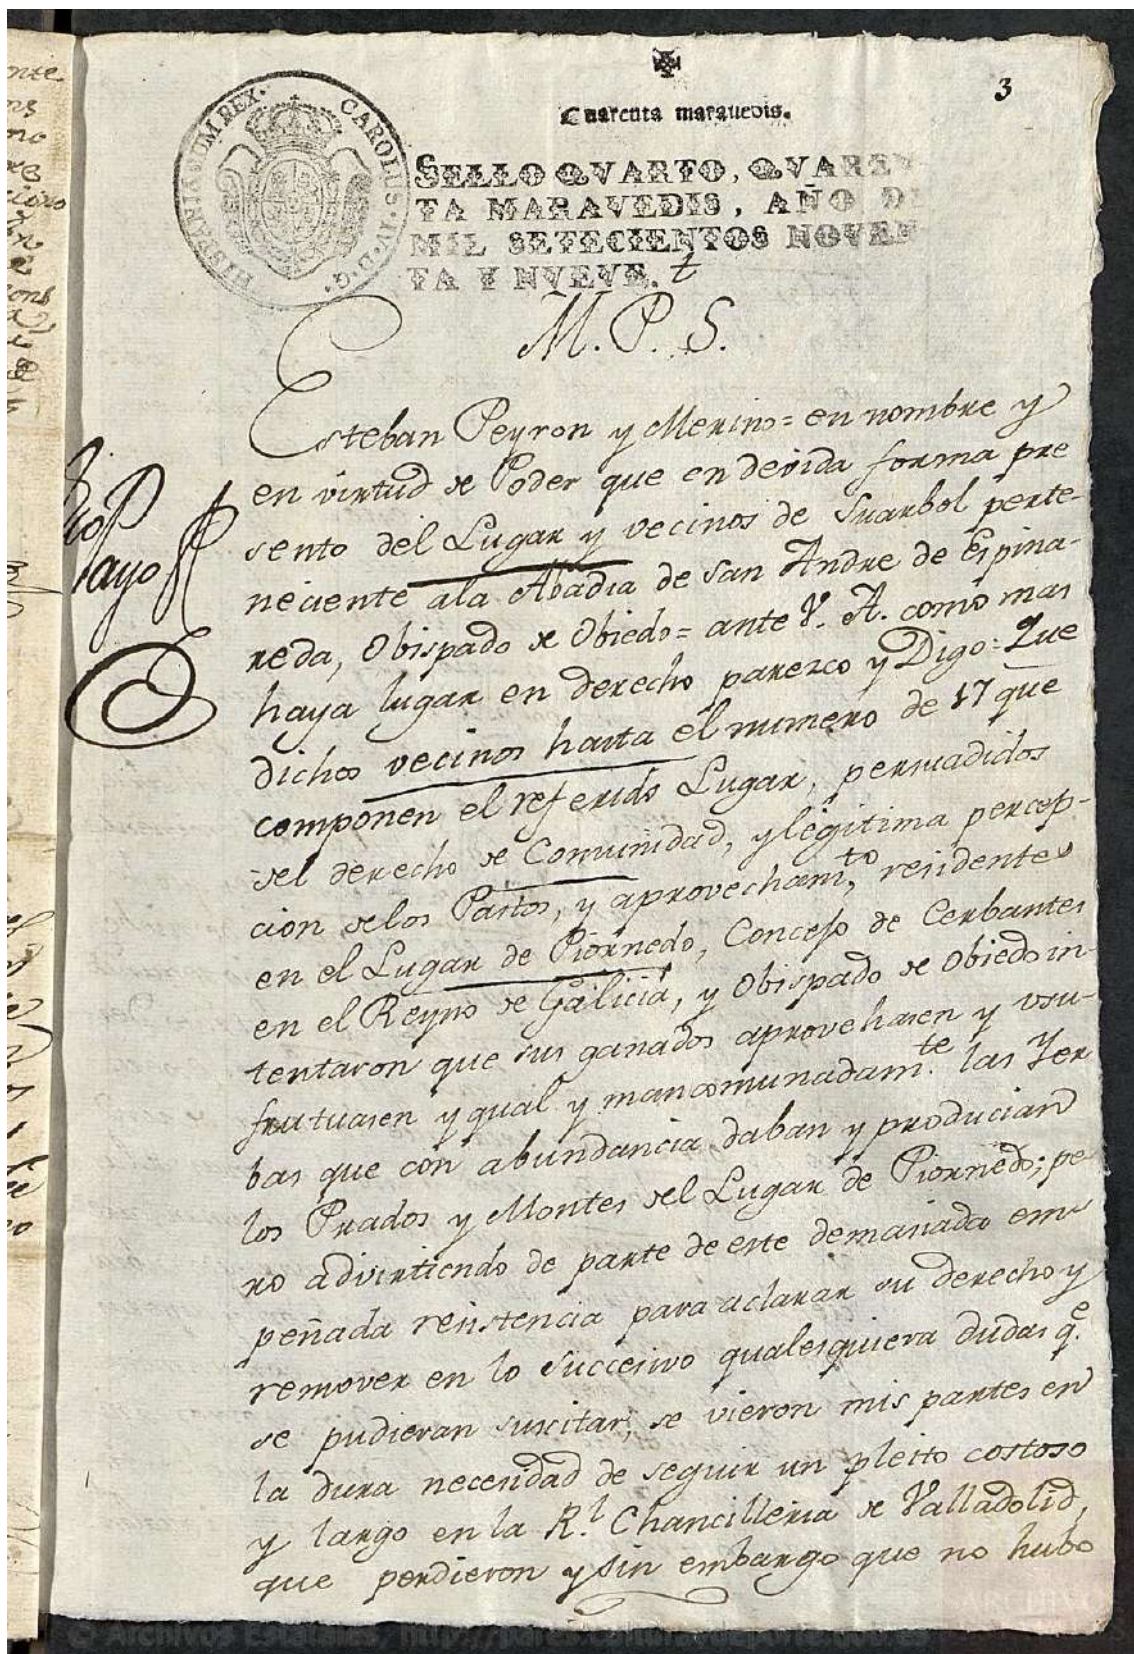 3
Cuarenta maravedis.
HISPANIARUM REX. CAROLUS. IV. D. G.
SELLO QVARTO, QVAREN
TA MARAVEDIS, AÑO DE
MIL SETECIENTOS NOVEN
TA Y NVEVE. t
M. P. S.
Esteban Peyron y Merino = en nombre y
en virtud de Poder que en devida forma pre
sento del Lugar y vecinos de Suarbol perte-
neciente ala Abadia de San Andre de Espina-
reda, Obispado de Obiedo = ante V. A. como mas
haya lugar en derecho parezco y Digo: Que
dichos vecinos hasta el numero de 17 que
componen el referido Lugar, persuadidos
del derecho de Comunidad, y legitima percep-
cion delos Pastos, y aprovecham.to residentes
en el Lugar de Piornedo, Concejo de Cerbantes
en el Reyno de Galicia, y Obispado de Obiedo in-
tentaron que sus ganados aprovehasen y usu-
frutuasen ygual y mancomunadam.te las Yer
bas que con abundancia daban y producian
los Prados y Montes del Lugar de Piornedo; pe
ro advirtiendo de parte de este demasiada em-
peñada resistencia para aclarar su derecho y
remover en lo succesivo qualesquiera dudas q.e
se pudieran suscitar, se vieron mis partes en
la dura necesidad de seguir un pleito costoso
y largo en la R.l Chancilleria de Valladolid,
que perdieron y sin embargo que no hubo